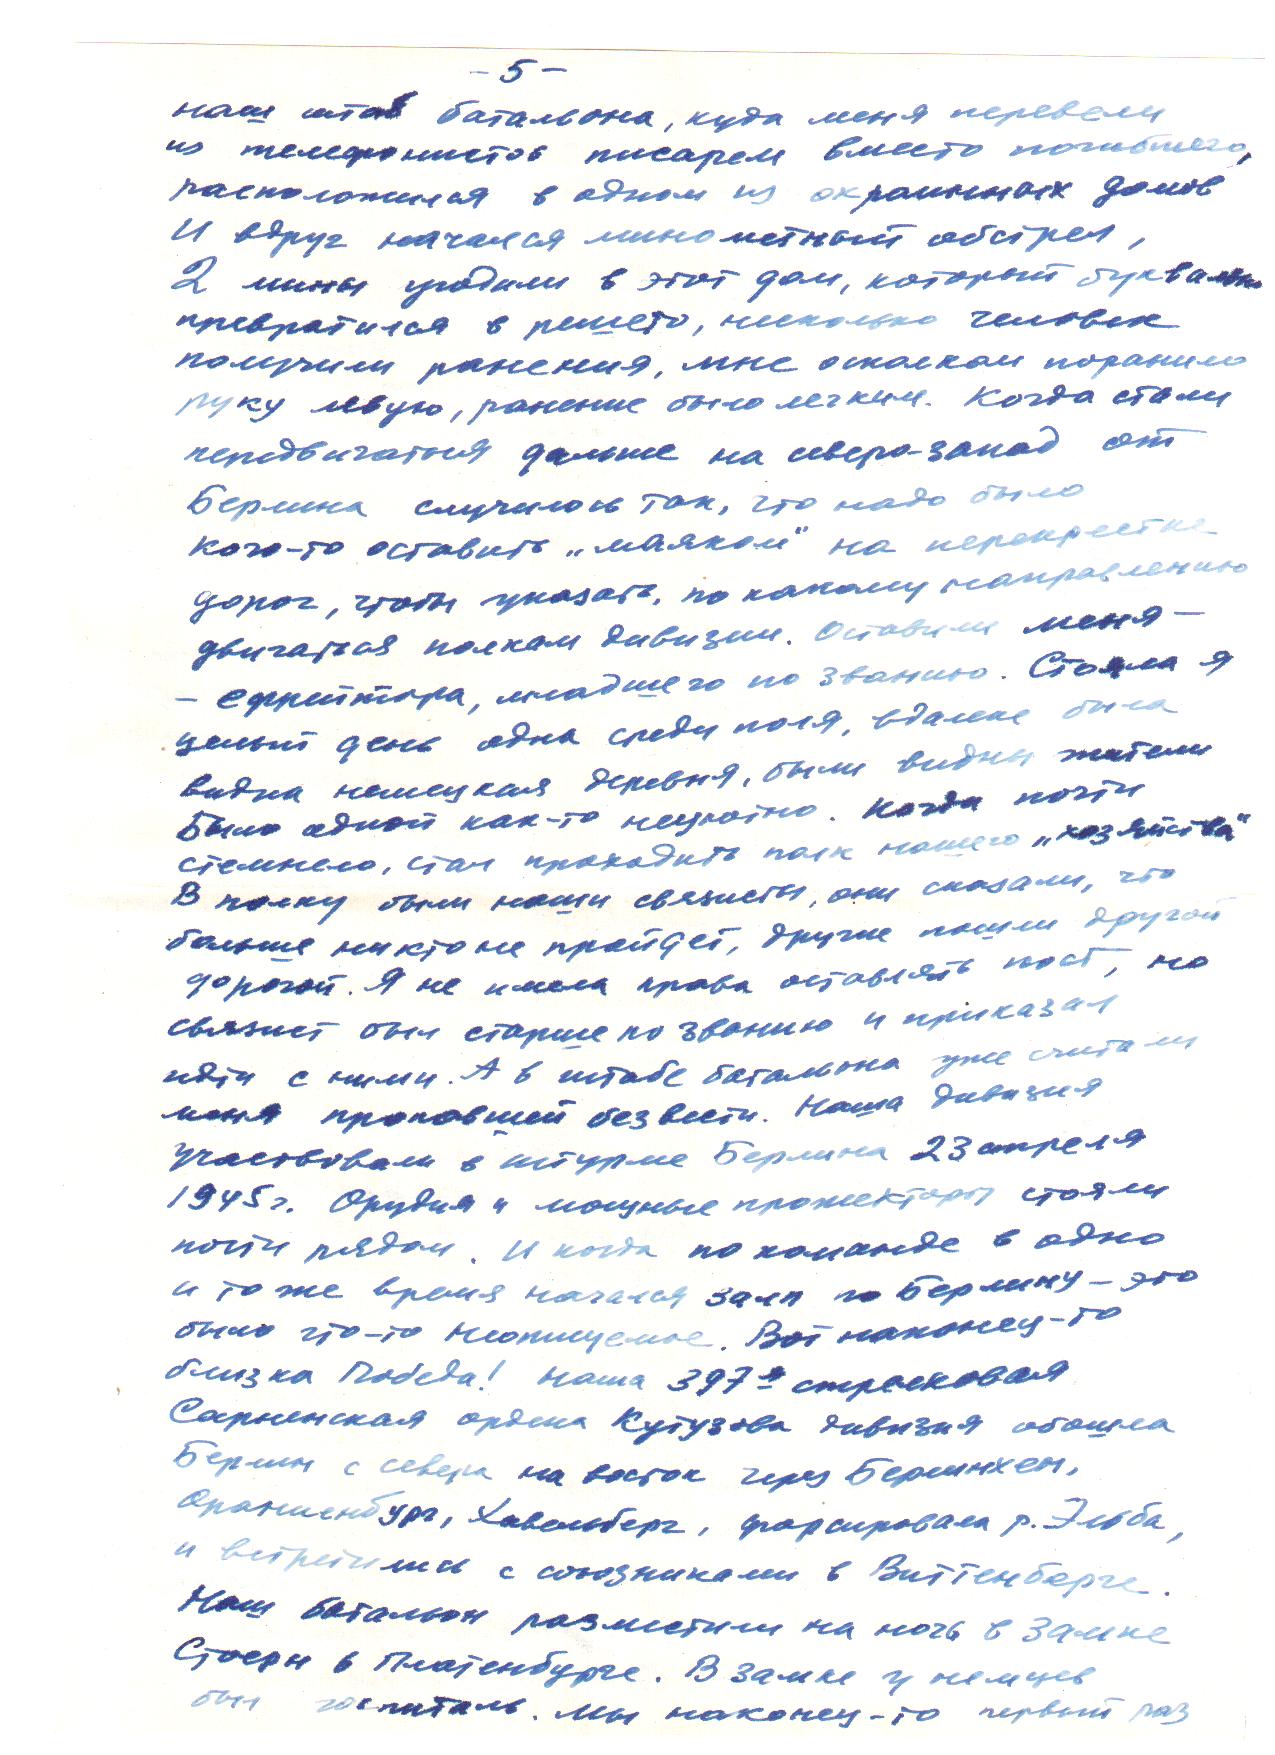 - 5 -
наш штаб батальона, куда меня перевели
из телефонистов писарем вместо погибшего,
расположился в одном из окраинных домов
И вдруг начался минометный обстрел,
2 мины угодили в этот дом, который буквально
превратился в решето, несколько человек
получили ранения, мне осколком поранило
руку левую, ранение было легким. Когда стали
передвигаться дальше на северо-запад от
Берлина случилось так, что надо было
кого-то оставить „маяком" на перекрестке
дорог, чтобы указать, по какому направлению
двигаться полкам дивизии. Оставили меня -
- ефрейтора, младшего по званию. Стояла я
целый день одна среди поля, вдалеке была
видна немецкая деревня, были видны жители
Было одной как-то неуютно. Когда почти
стемнело, стал проходить полк нашего „хозяйства"
В полку были наши связисты, они сказали, что
больше никто не пройдет, другие пошли другой
дорогой. Я не имела права оставлять пост, но
связист был старше по званию и приказал
идти с ними. А в штабе батальона уже считали
меня пропавшей без вести. Наша дивизия
участвовали в штурме Берлина 23 апреля
1945 г. Орудия и мощные прожекторы стояли
почти рядом. И когда по команде в одно
и то же время начался залп по Берлину - это
было что-то неописуемое. Вот наконец-то
близка Победа! Наша 397я стрелковая
Сарненская ордена Кутузова дивизия обошла
Берлин с севера на восток через Берлинхен,
Ораниенбург, Хавельберг, форсировала р. Эльба,
и встретились с союзниками в Виттенберге.
Наш батальон разместили на ночь в замке
Стоерн в Платенбурге. В замке у немцев
был госпиталь. Мы наконец-то первый раз